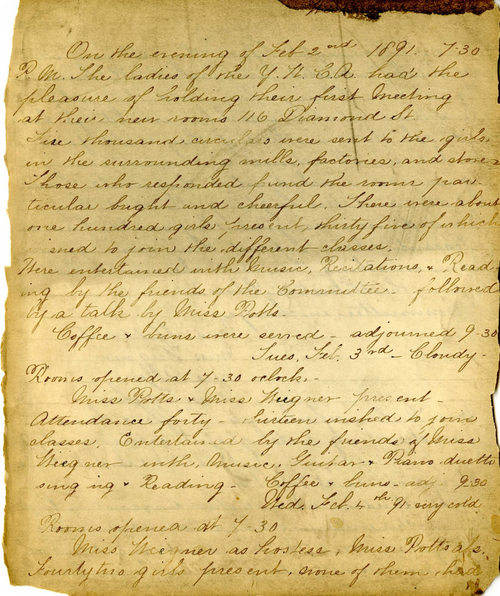 On the evening of Feb 2nd 1891. 7-30
P.M. The ladies of the Y.W.C.A. had the
pleasure of holding their first Meeting
at their new rooms 116 Diamond St.
Five thousand circulars were sent to the girls
in the surrounding mills, factories, and stores
Those who responded found the rooms par-
ticular bright and cheerful. There were about
one hundred girls present, thirty five of which
shed to join the different classes.
Were entertained with Music, Recitations, & Read-
ing by the friends of the Committee - followed
by a talk by Miss Potts.
Coffee & buns were served - adjourned 9-30
Tues. Feb. 3rd - Cloudy -
Rooms opened at 7-30 oclock. -
Miss Potts & Miss Wiegner present -
Attendance forty - thirteen wished to join
classes. Entertained by the friends of Miss
Wiegner with, Music, Guitar & Piano duetts
singing & Reading - Coffee & buns - adj 9.30
Wed. Feb. 4th 91. very cold
Rooms opened at 7-30
Miss Wiegner as hostess, Miss Potts als.
Fourty two girls present, none of them had